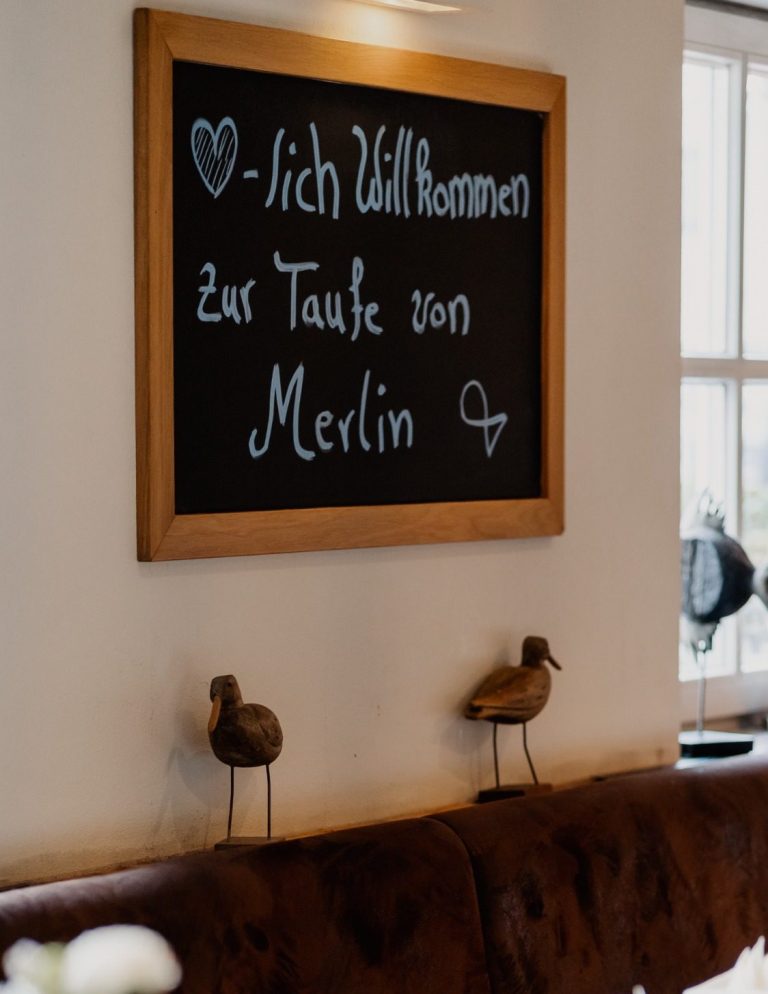 ♥-lich Willkommen
Zur Taufe von
Merlin